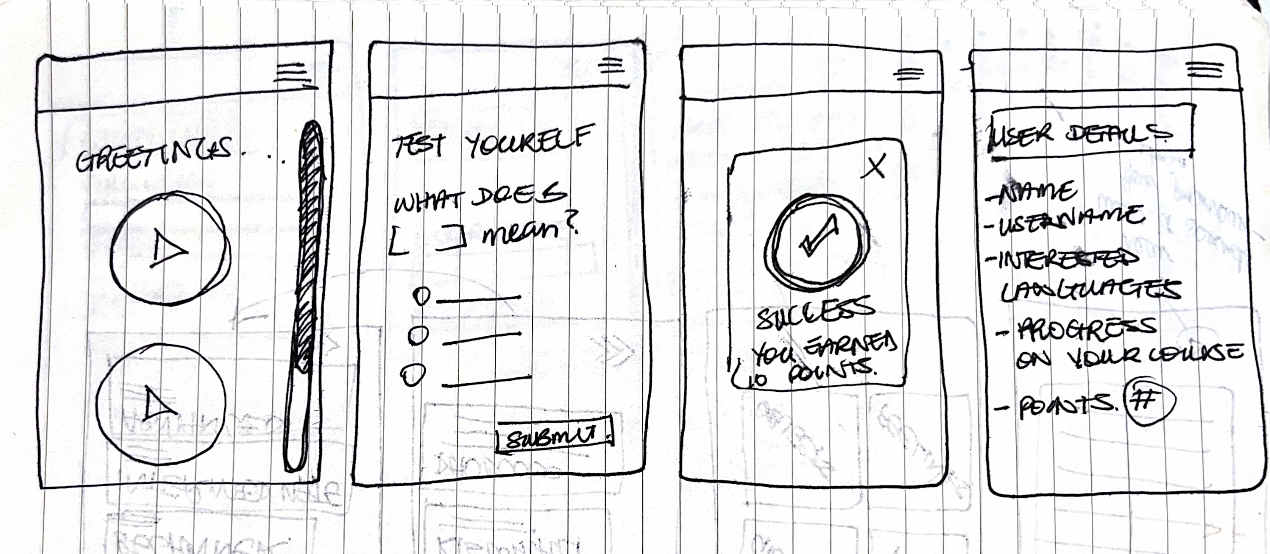 GREETINGS....
TEST YOURSELF
WHAT DOES
[ ] mean?
SUBMIT
X
SUCCESS
YOU EARNED
10 POINTS.
USER DETAILS
-NAME
-USERNAME
-INTERESTED
LANGUAGES
- PROGRESS
ON YOUR COURSE
- POINTS. #